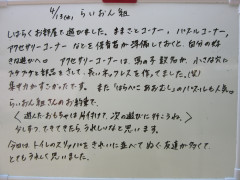 4/13(水) らいおん組
しばらくお部屋で遊びました。ままごとコーナー、パズルコーナー、
アクセサリーコーナーなどを保育者が準備しておくと、自分の好
きな遊びへ。アクセサリーコーナーは、男の子数名が、小さな穴に
キラキラを部品をさして、長い ネックレスを作ってました。(笑)
集中力がすごかったです。また「はらぺこあおむし」のパズルも人気。
らいおん組さんのお約束で、
〈遊んだおもちゃは片付けて、次の遊びに行こうね。〉
少しずつ、できてきたら、うれしいなと思います。
今日は トイレのスリッパをきれいに並べて ぬぐ友達が多くて
とてもうれしく思いました。